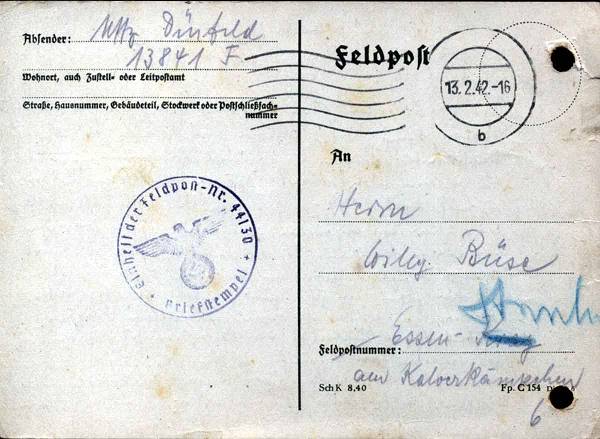 Absender: Uffz Dünfeld
13841 F
Wohnort, auch Zustell- oder Leitpostamt
Straße, Hausnummer, Gebäudeteil, Stockwerk oder Postschließfach-
nummer
Einheit der Feldpost-Nr. 44130
Briefstempel
Feldpost
13.2.42.-16
b
An
Herrn
Willy. Büse
Essen-
Feldpostnummer:
am Kalverkämpchen
6
Sch K 8.40
Fp. C 154